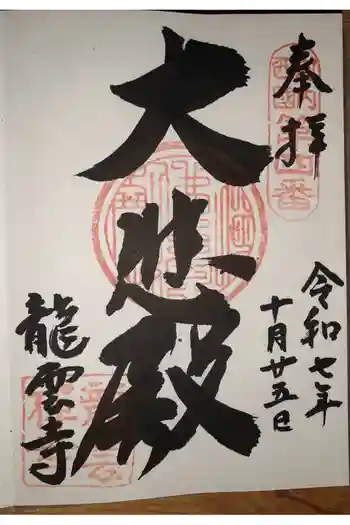 奉拝
第四番
令和七年
十月廿五日
大悲殿
龍雲寺